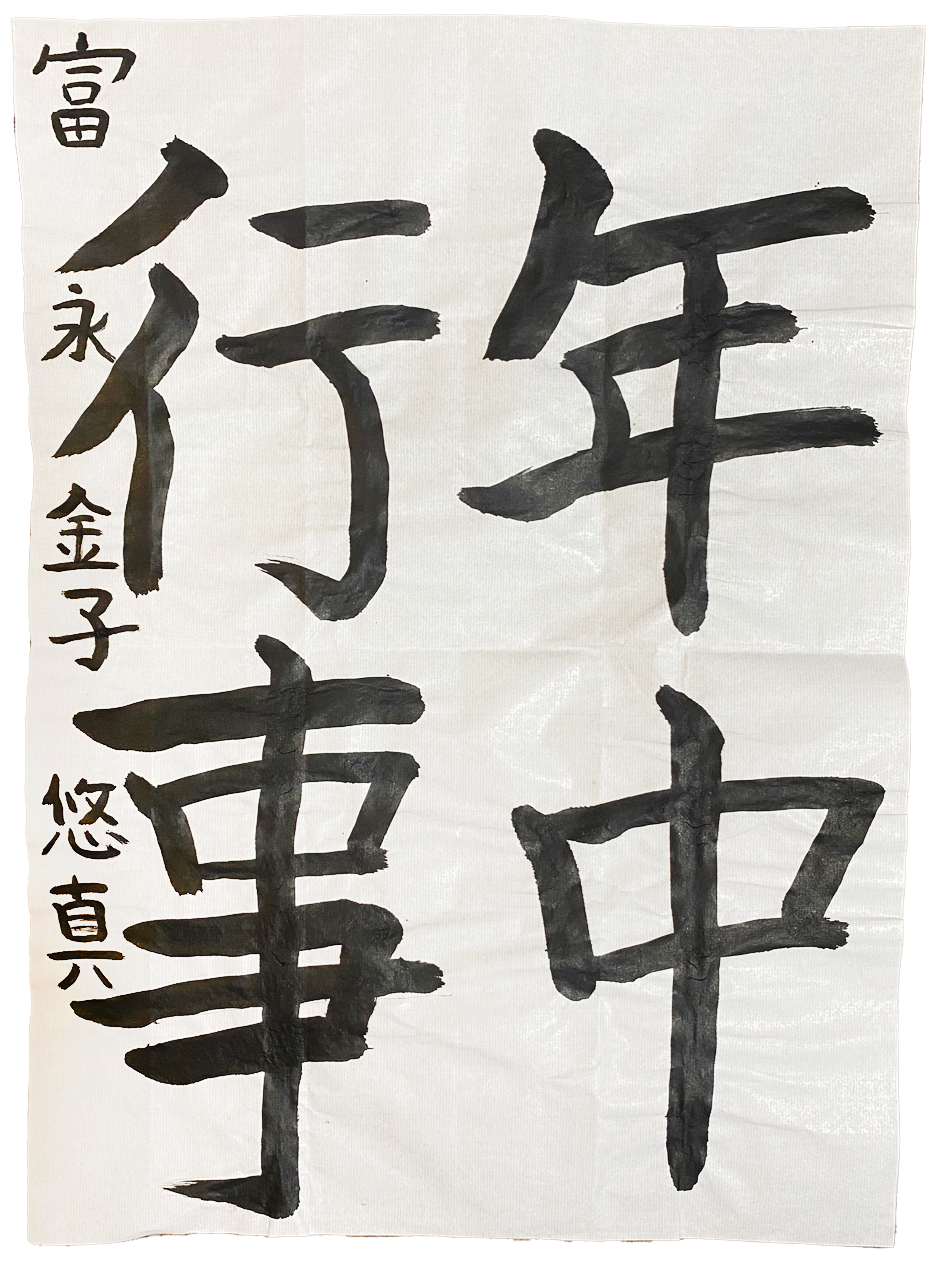 年中
行事
富永金子悠真